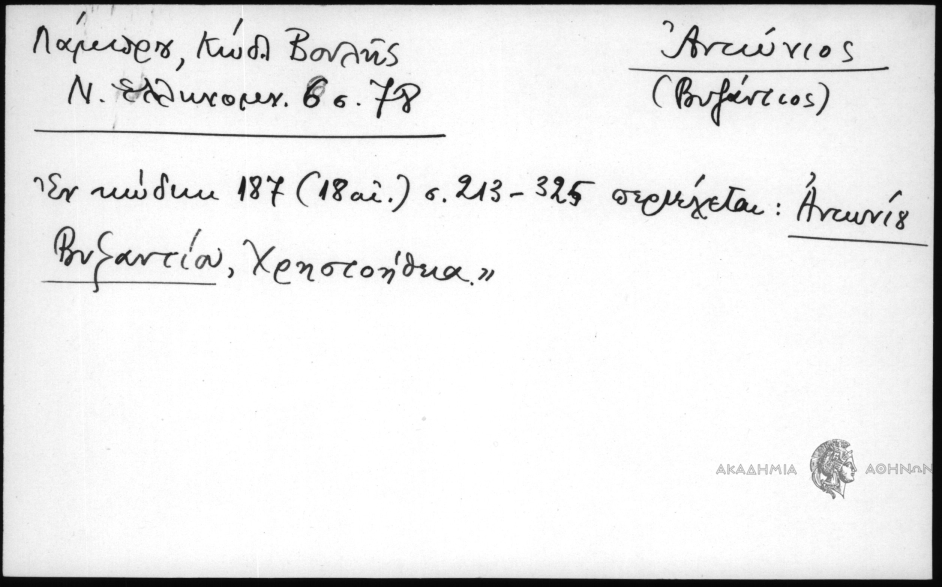 Λάμπρου, Κώδ. Βουλῆς
Ν. Ἑλληνομν. 6 σ. 78
Ἀντώνιος
(Βυζάντιος)
Ἐν κώδικι 187 (18 αἰ.) σ. 213-325 περιέχεται: Ἀντωνίȣ
Βυζαντίου, Χρηστοήθεια."
ΑΚΑΔΗΜΙΑ ΑΘΗΝΩΝ